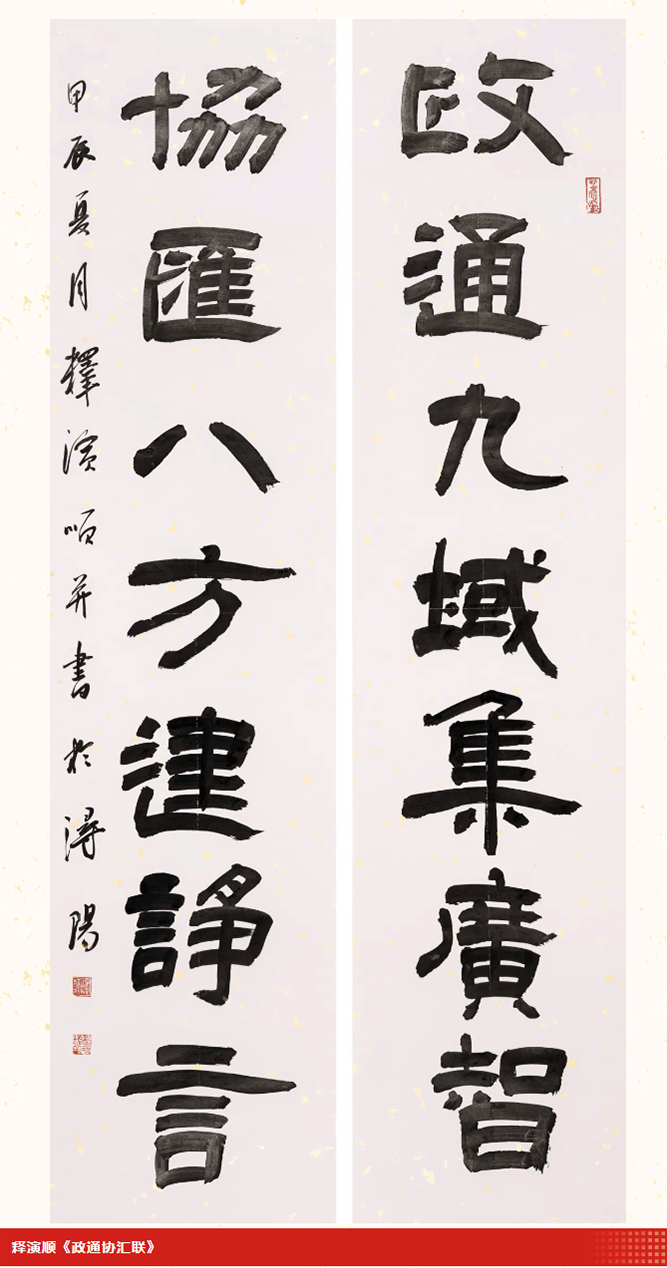 政通九域集廣智
協匯八方建諍言
甲辰夏月釋演順并書於潯陽
释演顺《政通协汇联》